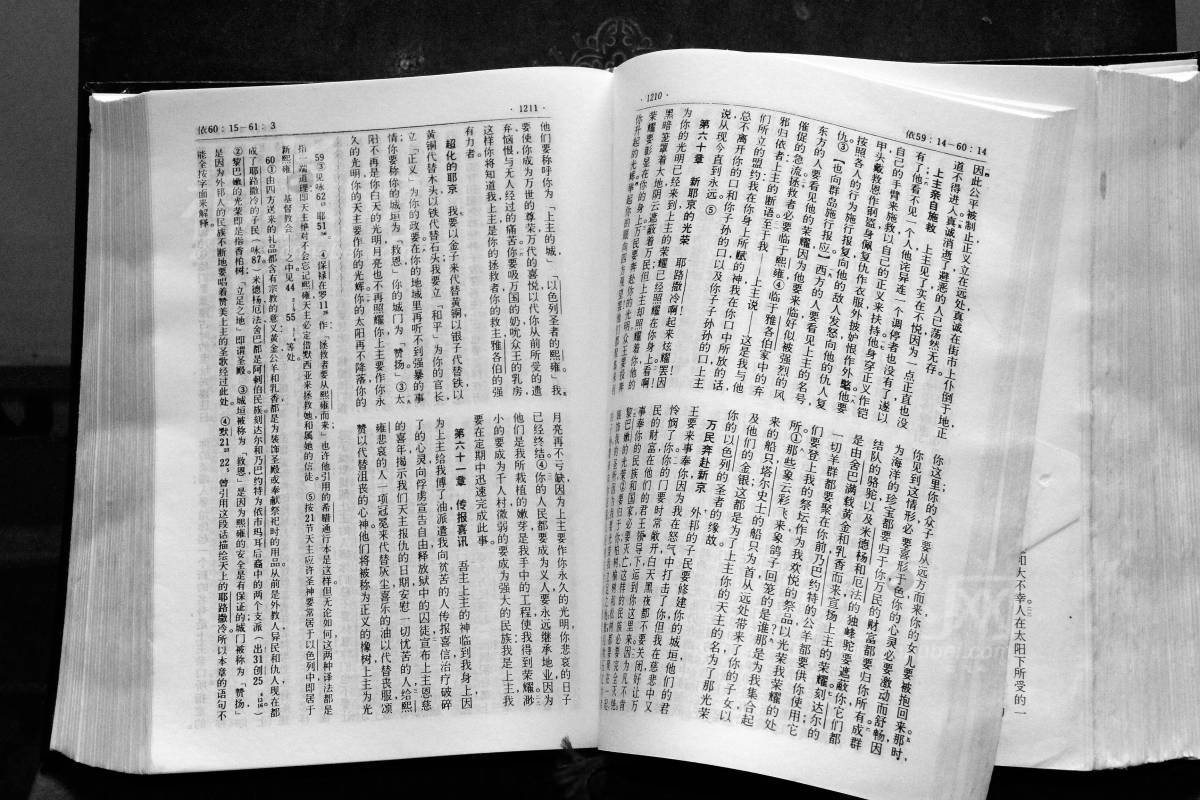 · 1210 ·
依59：14—60：14
因此公平被制止正义立在远处真诚在街市上仆倒于地正
道不得进入真诚消逝了避恶的人已荡然无存。
上主亲自施救 上主见了实在不悦因为一点正直也没
有了他看不见一个人他诧异连一个调停者也没有了遂以
自己的手臂来施救以自己的正义来扶持。他身穿正义作铠
甲头戴救恩作钢盔身佩复仇作衣服外披妒恨作外氅他要
按照各人的行为施行报复向他的敌人发怒向他的仇人复
仇③【也向群岛施行报应】西方的人要看见上主的名号，
东方的人要看见他的荣耀因为他要来临好似被强烈的风
催促的急流拯救者必要临于熙雍④临于雅各伯家中的弃
邪归依者上主的断语至于我——上主说——这是我与他
们所立的盟约我在你身上所赋的神我在你口中所放的话
总不离开你的口和你子孙的口以及你子子孙孙的口上主
说从现今直到永远。⑤
第六十章 新耶京的光荣 耶路撒冷啊起来炫耀！罢因
为你的光明已经来到上主的荣耀已经照耀在你身上看啊
黑暗笼罩着大地阴云遮蔽着万民但上主却照耀着你他的
荣耀要彰显在你的身上万民要奔赴你的光明众王要投奔
你升起的光辉
你这里你的众子要从远方而来你的女儿要被抱回来那时，
你见到这情形必要喜形于色你的心灵必要激动而舒畅因
为海洋的珍宝都要归于你万民的财富都要归你所有成群
结队的骆驼以及米德杨和厄法的独峰驼要遮蔽你它们都
是由舍巴满载黄金和乳香而来宣扬上主的荣耀。刻达尔的
一切羊群都要聚在你前乃巴约特的公羊都要供你使用它
们要登上我的祭坛作为我欢悦的祭品以光荣我荣耀的处
所①那些象云彩飞来象鸽子回笼的是谁那是为我集合起
来的船只塔尔史士的船只为首从远处带来了你的子女以
及他们的金银这都是为了上主你的天主的名为了那光荣
你的以色列的圣者的缘故。
万民奔赴新京 外邦的子民要修建你的城垣他们的君
王要来事奉你因为我在怒气中打击了你但我在慈悲中又
怜悯了你你的门要时常敞开白天黑夜都不要关闭好让万
民的财富在他们的君王领导下运到你这里来因为凡不肯
事奉你的民族和国家必要灭亡这样的民族必要完全灭绝
黎巴嫩的光荣②要归于你
和大不幸人在太阳下所受的一
· 1211 ·
依60：15—61：3
他们要称呼你为「上主的城」「以色列圣者的熙雍」我
要使你成为万世的尊荣万代的喜悦以代你从前所受的遗
弃恼恨与无人经过的痛苦你要吸万国的奶吮众王的乳房
这样你将知道我上主是你的拯救者你的救主雅各伯的强
有力者。
超化的耶京 我要以金子来代替黄铜以银子代替铁以
黄铜代替木头以铁代替石头我要立「和平」为你的官长，
立「正义」为你的政要在你的地域里再听不到强暴的事
情你要称你的城垣为「救恩」你的城门为「赞扬」③太
阳不再是你白天的光明月亮也不再照耀你上主要作你永
久的光明你的天主要作你的光辉你的太阳再不降落你的
月亮再不亏缺因为上主要作你永久的光明你悲哀的日子
已经终结。④你的人民都要成为义人要永远继承地业因为
他们是我所栽植的嫩芽是我手中的工程使我得到荣耀渺
小的要成为千人村微弱的要成为强大的民族我是上主我
要在定期中迅速完成此事。
第六十一章 传报喜讯 吾主上主的神临到我身上因
为上主给我傅了油派遣我向贫苦的人传报喜信治疗破碎
了的心灵向俘虏宣告自由释放狱中的囚徒宣布上主恩慈
的喜年揭示我们天主报仇的日期安慰一切忧苦的人给熙
雍悲哀的人一项冠冕来代替灰尘喜乐的油以代替丧服颂
赞以代替沮丧的心神他们将被称为正义的橡树上主为光
59③见咏62 耶51 ④保禄在罗11 作：「拯救者要从熙雍而来」也许他引用的希腊通行本是这样但无论如何这两种译法都是
指一端道理即天主绝对不会忘记熙雍天主必定借默西亚来拯救她和属她的信徒。⑤按21节天主应许圣神要常居于以色列中即居于
新熙雍——基督教会——之中见44 55 等处。
60①由四方送来的礼品都含有宗教的意义黄金公羊和乳香都是为装饰圣殿或奉献祭祀时的用品从前是外教人异民和仇人现在都
成了耶路撒冷的子民（咏87）米德杨厄法舍巴都是阿剌伯民族刻达尔和乃巴约特为依市玛耳后裔中的两个支派（出31创25）
②黎巴嫩的光荣即是指香柏树。「立足之地」即谓圣殿。③城垣被称为「救恩」是因为熙雍的安全是有保证的城门被称为「赞扬」
是因为外邦人的民族不断地要唱着赞美上主的圣歌经过此处。④默21 22 曾引用这段话描绘天上的耶路撒冷所以本章的语句不
能全按字面来解释。